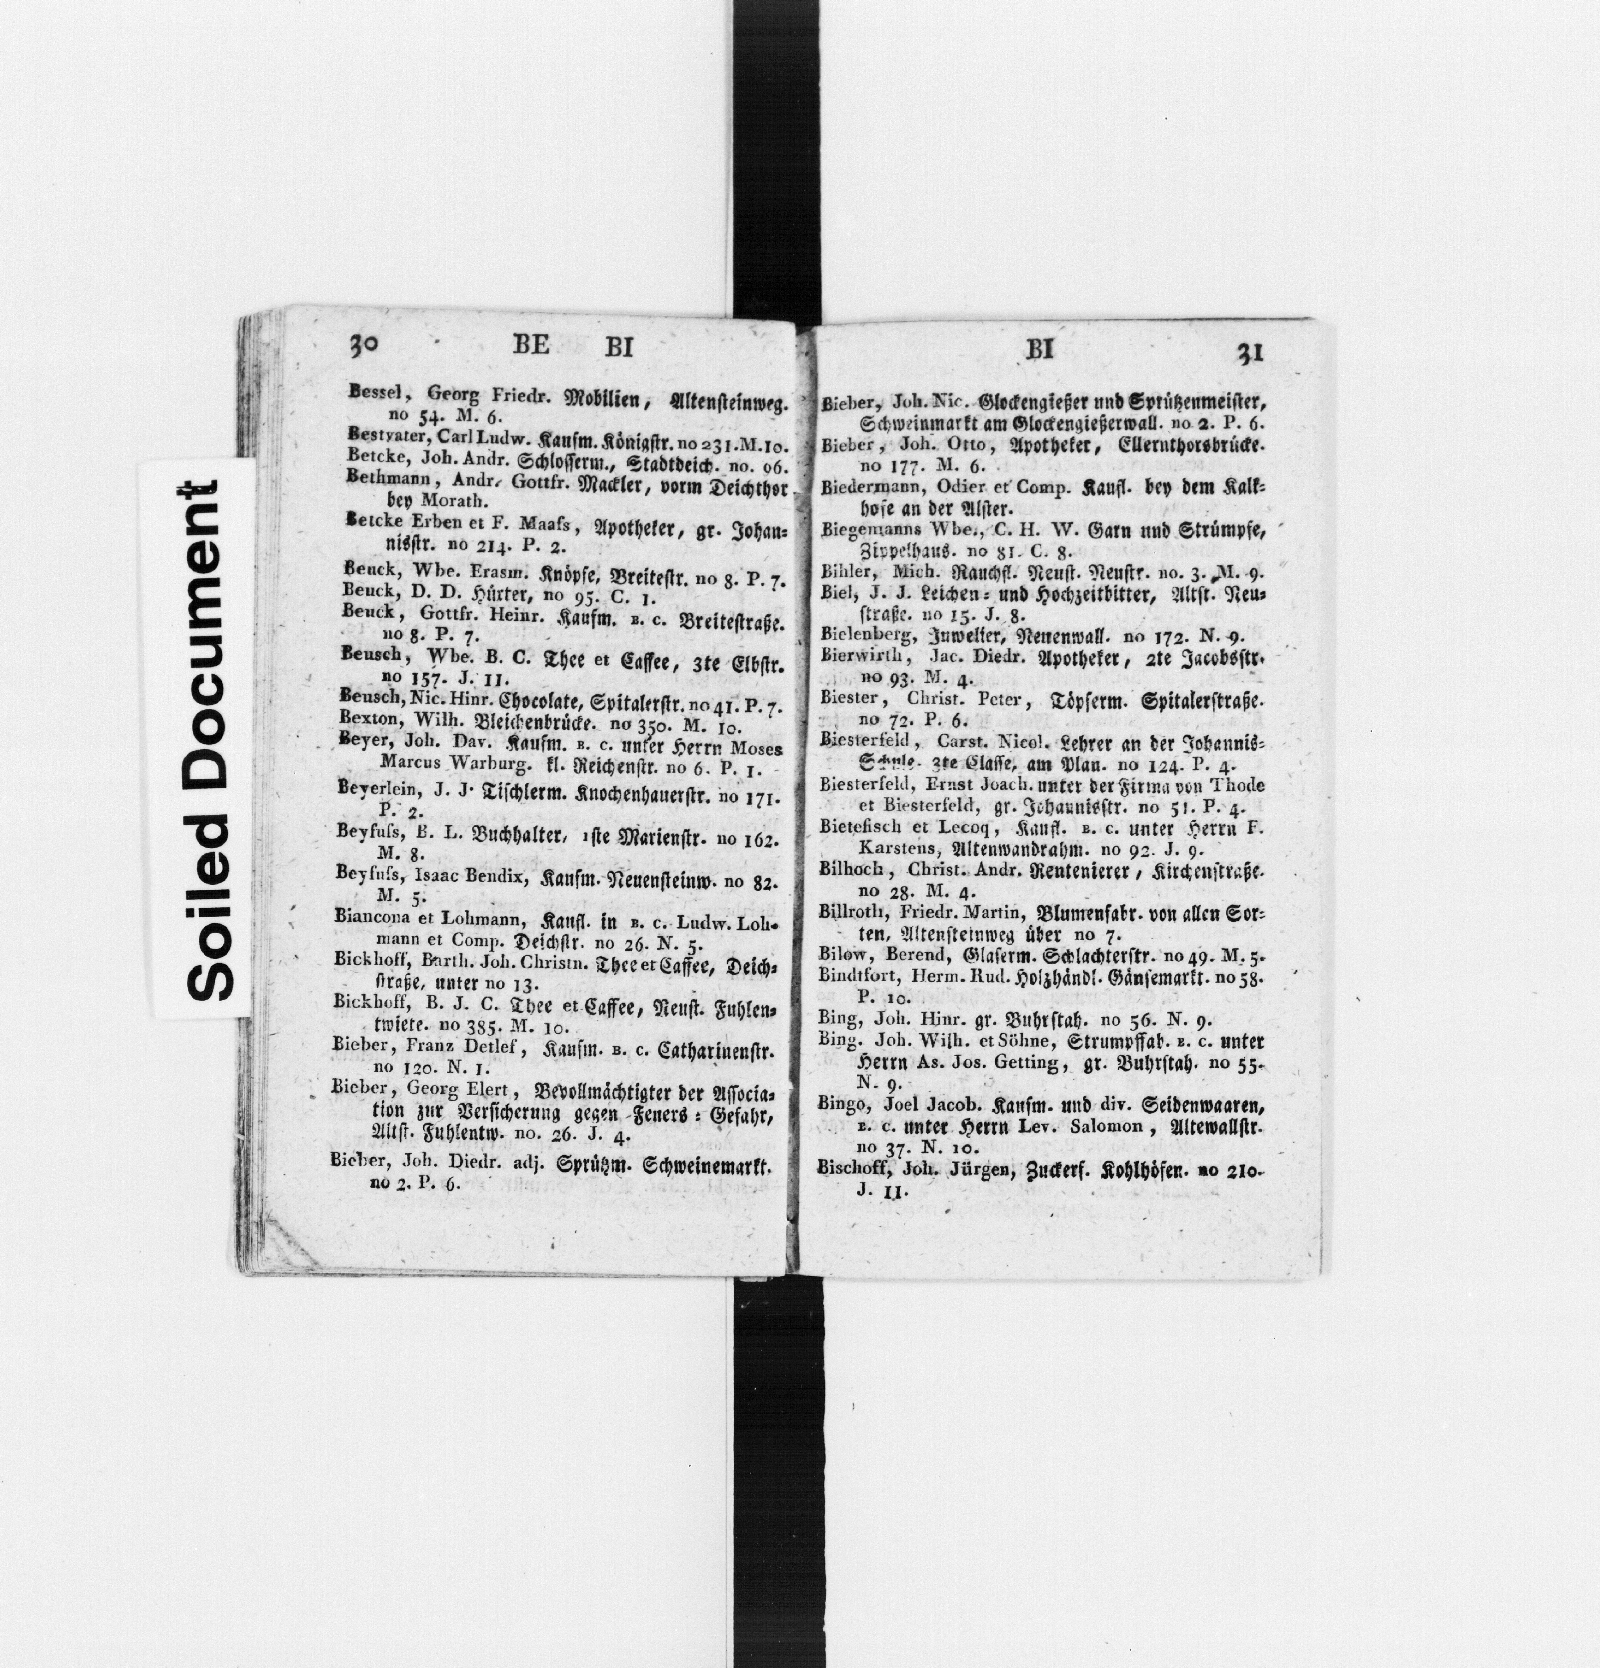 Soiled Document
30 BE BI
Bessel, Georg Friedr. Mobilien, Altensteinweg.
no 54. M. 6.
Bestvater, Carl Ludw. Kaufm. Königstr. no 231. M. 10.
Betcke, Joh. Andr. Schlosserm., Stadtdeich. no. 96.
Bethmann, Andr. Gottfr. Mackler, vorm Deichthor
bey Morath.
Betcke Erben et F. Maass, Apotheker, gr. Johan-
nisstr. no 214. P. 2.
Beuck, Wbe. Erasm. Knöpfe, Breitestr. no 8. P. 7.
Beuck, D. D. Hürter, no 95. C. 1.
Beuck, Gottfr. Heinr. Kaufm. B. C. Breitestraße.
no 8. P. 7.
Beusch, Wbe. B. C. Thee et Caffee, 3te Elbstr.
no 157. J. 11.
Beusch, Nic. Hinr. Chocolate, Spitalerstr. no 41. P. 7.
Bexton, Wilh. Bleichenbrücke. no 350. M. 10.
Beyer, Joh. Dav. Kaufm. B. C. unter Herrn Moses
Marcus Warburg. kl. Reichenstr. no 6. P. 1.
Beyerlein, J. J. Tischlerm. Knochenhauerstr. no 171.
P. 2.
Beyfuss, B. L. Buchhalter, 1ste Marienstr. no 162.
M. 8.
Beyfuss, Isaac Bendix, Kaufm. Neuensteinw. no 82.
M. 5.
Biancona et Lohmann, Kaufl. in B. C. Ludw. Loh-
mann et Comp. Deichstr. no 26. N. 5.
Bickhoff, Barth. Joh. Christn. Thee et Caffee, Deich-
straße, unter no 13.
Bickhoff, B. J. C. Thee et Caffee, Neust. Fuhlen-
twiete. no 385. M. 10.
Bieber, Franz Detlef, Kaufm. B. C. Catharinenstr.
no 120. N. 1.
Bieber, Georg Elert, Bevollmächtigter der Associa-
tion zur Versicherung gegen Feuers-Gefahr,
Altst. Fuhlentw. no. 26. J. 4.
Bieber, Joh. Diedr. adj. Sprützm. Schweinemarkt.
no 2. P. 6.
BI 31
Bieber, Joh. Nic. Glockengießer und Sprützenmeister,
Schweinmarkt am Glockengießerwall. no 2. P. 6.
Bieber, Joh. Otto, Apotheker, Ellernthorsbrücke.
no 177. M. 6.
Biedermann, Odier et Comp. Kaufl. bey dem Kalk-
hofe an der Alster.
Biegemanns Wbe., C. H. W. Garn und Strümpfe,
Zippelhaus. no 81. C. 8.
Bihler, Mich. Rauchfl. Neust. Neustr. no. 3. M. 9.
Biel, J. J. Leichen- und Hochzeitbitter, Altst. Neu-
straße. no 15. J. 8.
Bielenberg, Juwelier, Neuenwall. no 172. N. 9.
Bierwirth, Jac. Diedr. Apotheker, 2te Jacobsstr.
no 93. M. 4.
Biester, Christ. Peter, Töpferm. Spitalerstraße.
no 72. P. 6.
Biesterfeld, Carst. Nicol. Lehrer an der Johannis-
Schule. 3te Classe, am Plan. no 124. P. 4.
Biesterfeld, Ernst Joach. unter der Firma von Thode
et Biesterfeld, gr. Johannisstr. no 51. P. 4.
Bietefisch et Lecoq, Kaufl. B. C. unter Herrn F.
Karstens, Altenwandrahm. no 92. J. 9.
Bilhoch, Christ. Andr. Rentenierer, Kirchenstraße.
no 28. M. 4.
Billroth, Friedr. Martin, Blumenfabr. von allen Sor-
ten, Altensteinweg über no 7.
Bilow, Berend, Glaserm. Schlachterstr. no 49. M. 5.
Bindtfort, Herm. Rud. Holzhändl. Gänsemarkt. no 58.
P. 10.
Bing, Joh. Hinr. gr. Buhrstah. no 56. N. 9.
Bing. Joh. Wilh. et Söhne, Strumpffab. B. C. unter
Herrn As. Jos. Getting, gr. Buhrstah. no 55.
N. 9.
Bingo, Joel Jacob. Kaufm. und div. Seidenwaaren,
B. C. unter Herrn Lev. Salomon, Altewallstr.
no 37. N. 10.
Bischoff, Joh. Jürgen, Zuckerf. Kohlhöfen. no 210.
J. 11.